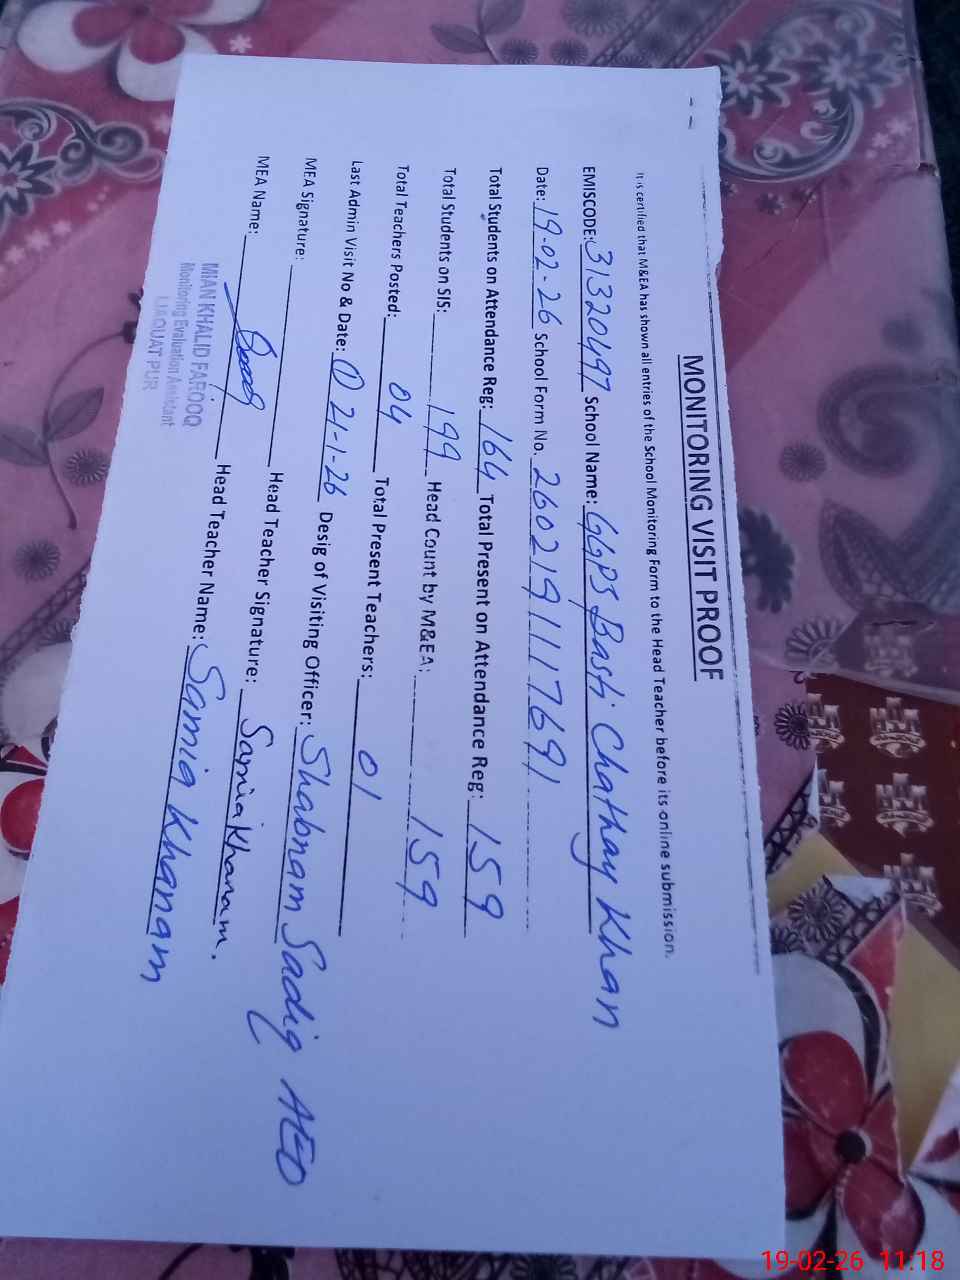 MONITORING VISIT PROOF
It is certified that M&EA has shown all entries of the School Monitoring Form to the Head Teacher before its online submission.
EMISCODE: 31320497 School Name: GGPS Basti Chathay Khan
Date: 19-02-26 School Form No. 2602191117691
Total Students on Attendance Reg: 164 Total Present on Attendance Reg: 159
Total Students on SIS: 199 Head Count by M&EA: 159
Total Teachers Posted: 04 Total Present Teachers: 01
Last Admin Visit No & Date: (1) 21-1-26 Desig of Visiting Officer: Shabnam Sadiq AEO
MEA Signature: Head Teacher Signature: Samia Khanam.
MEA Name: Head Teacher Name: Samia Khanam
MIAN KHALID FAROOQ
Monitoring Evaluation Assistant
LIAQUAT PUR
19-02-26 11:18